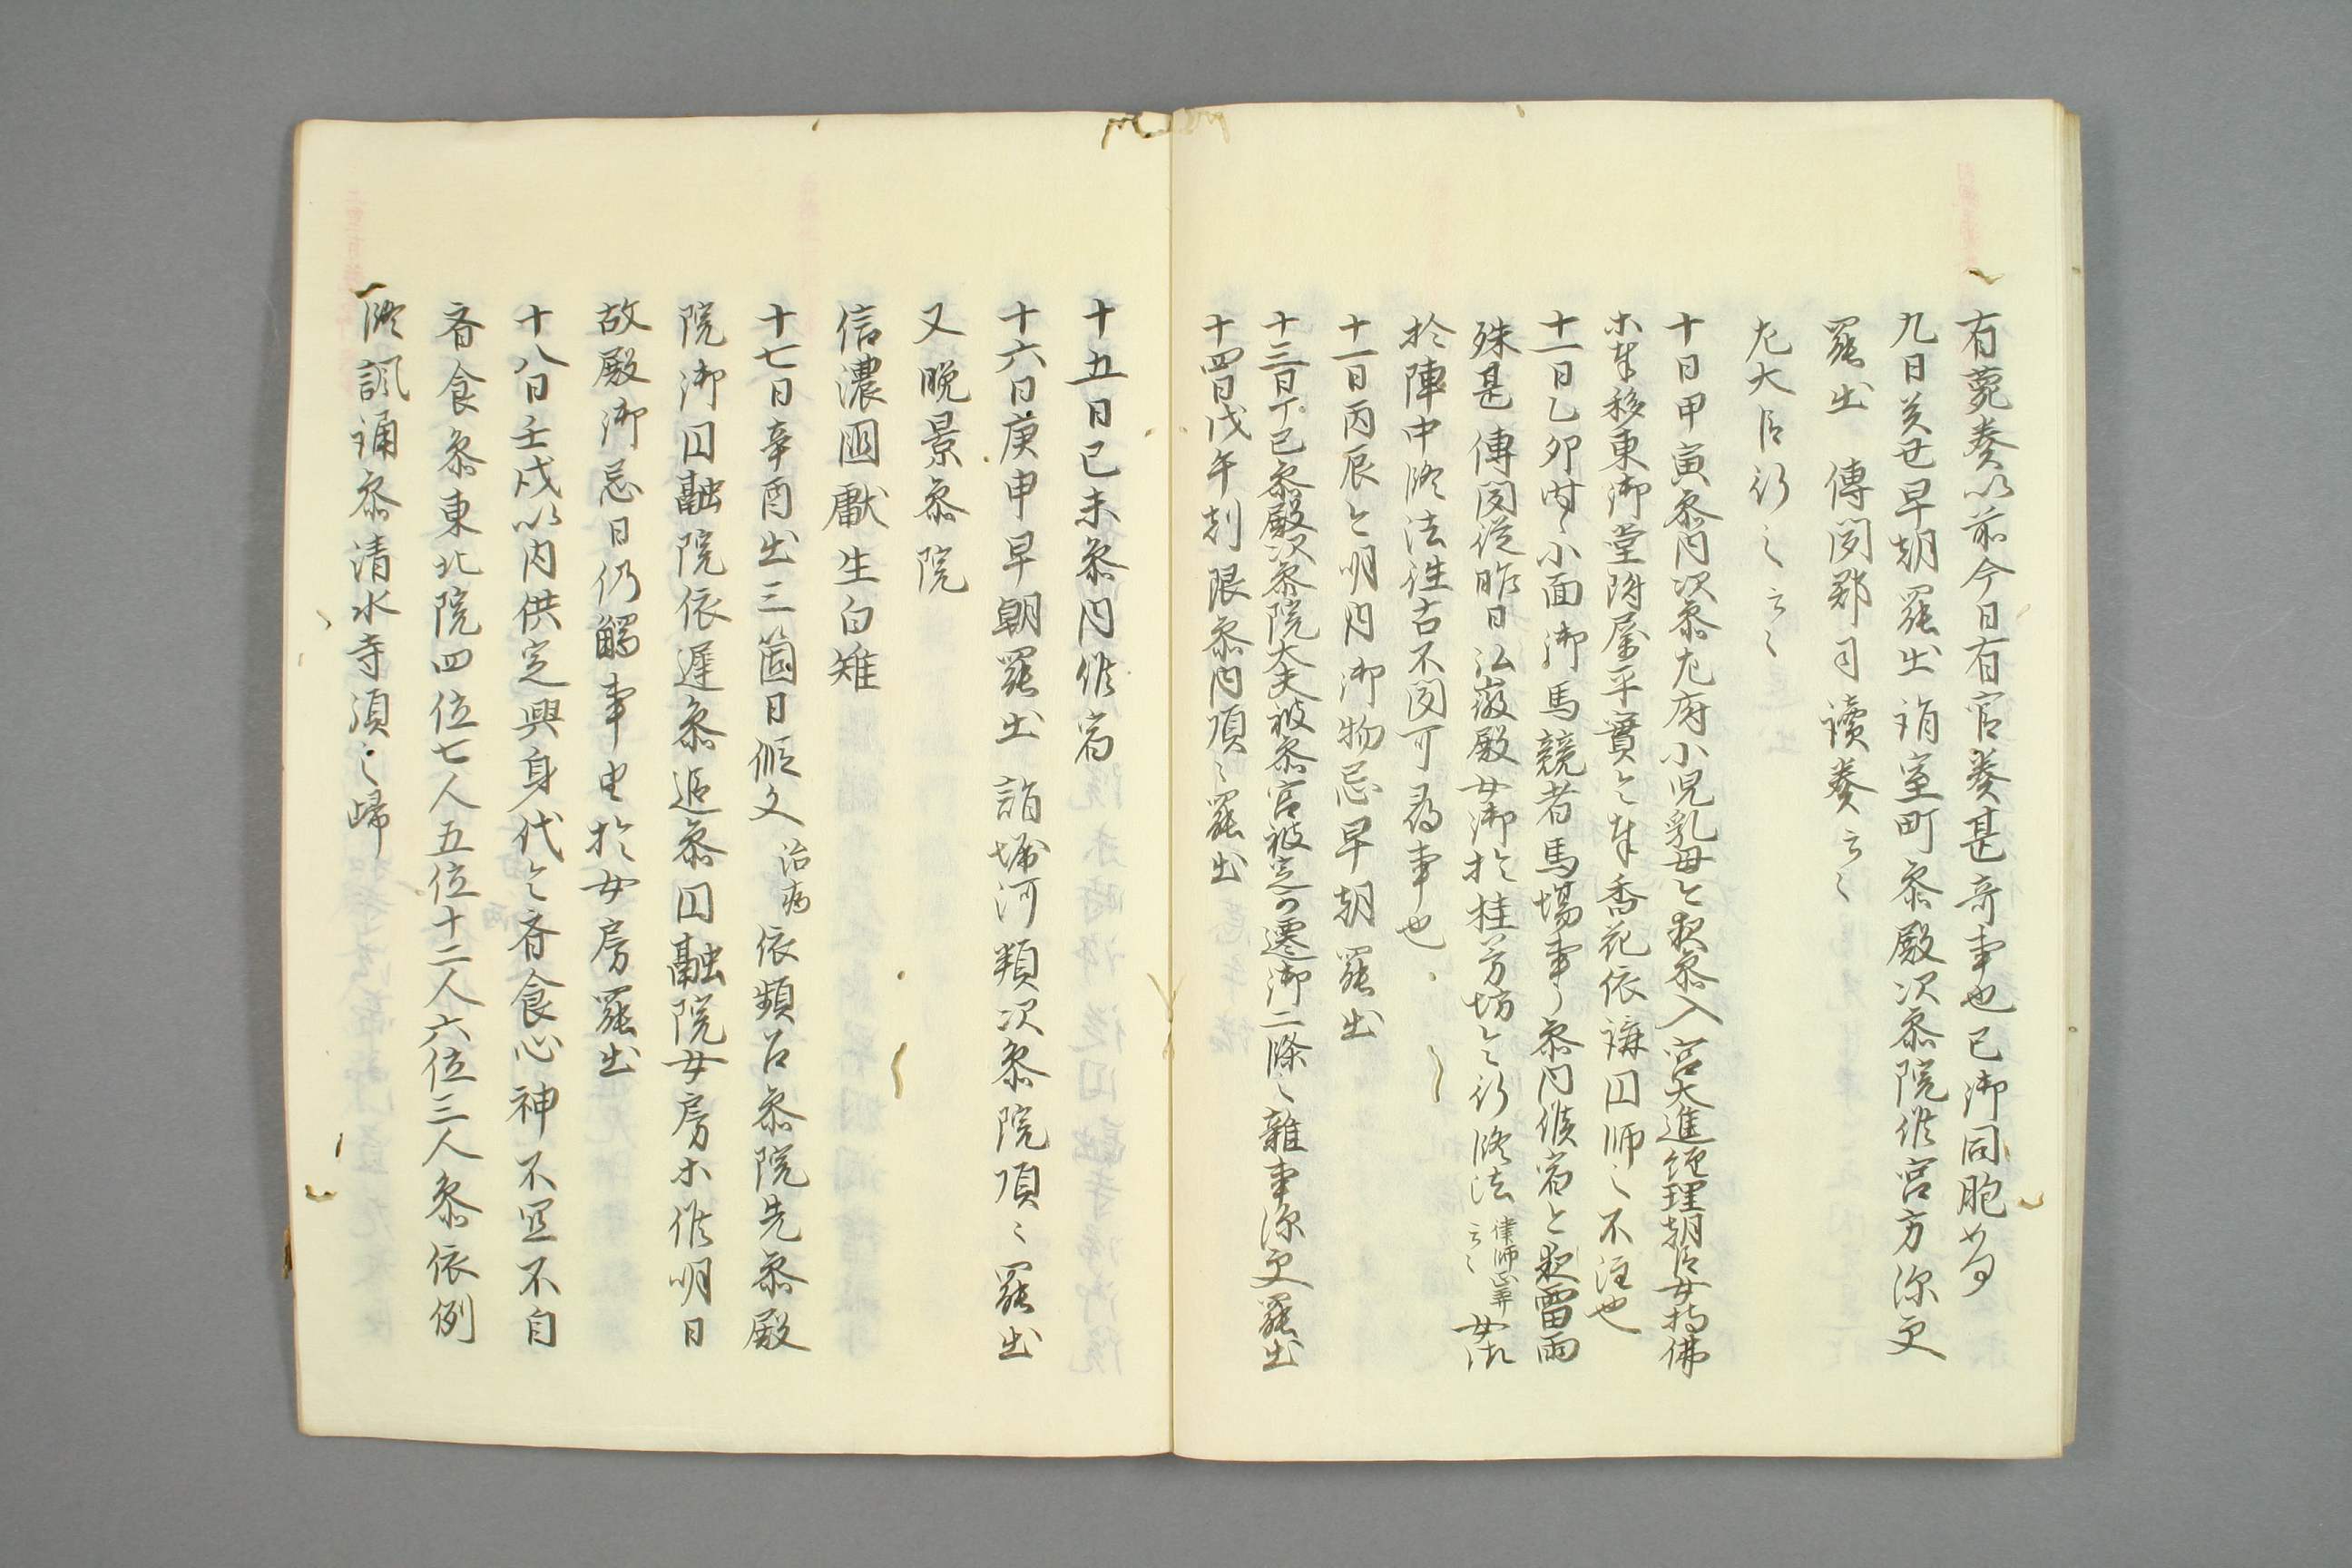 有薨奏以前今日有官奏甚奇事也已御同胞如何
九日癸丑早朝罷出詣室町参殿次参院候宮方深更
罷出 傳聞郡司讀奏云々
左大臣行之云々
十日甲寅参内次参左府小児乳母今夜参入宮大進理朝臣女持佛
等移東御堂階屋平實令奉香花依講因師之不注也
十一日乙卯時々小面御馬競者馬場事々参内候宿今夜雷雨
殊甚傳聞従昨日弘徽殿女御於桂芳坊令行修法律師云々女御
於陣中修法往古不聞可尋事也
十二日丙辰今明内御物忌早朝罷出
十三日丁巳参殿次参院大夫被参宮被定可遷御二條之雜事深更罷出
十四日戊午剋限参内頃之罷出
十五日己未参内候宿
十六日庚申早朝罷出詣堀河頼次参院頃之罷出
又晩景参院
信濃國獻生白雉
十七日辛酉出三箇日假文治病依頻召参院先参殿
院御円融院依遅参追参円融院女房等候明日
故殿御忌日仍觸事由於女房罷出
十八日壬戌以内供定興身代令斉食心神不宜不自
斉食参東北院四位七人五位十二人六位三人参依例
修諷誦参清水寺須之歸